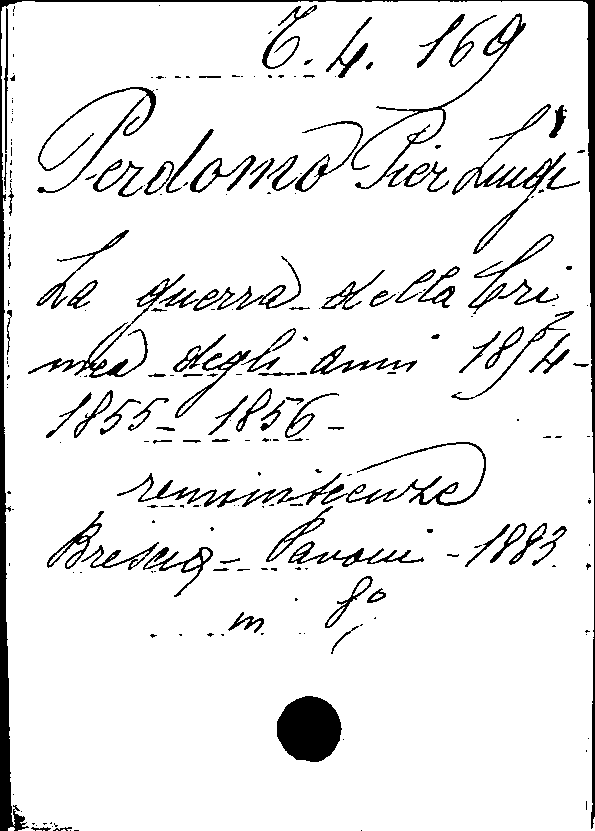 T. 4. 169
Perdomo Pier Luigi
La guerra della Cri
mea degli anni 1854-
1855- 1856-
reminiscenze
Brescia - Pavoni - 1883
in 8°